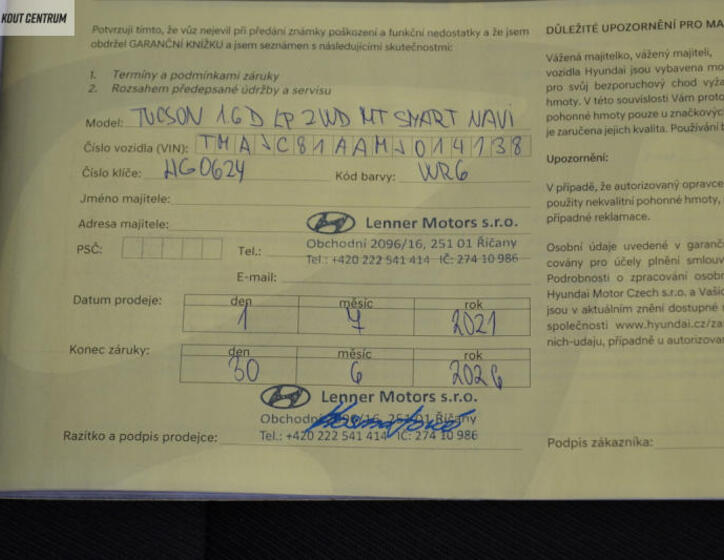 KOUT CENTRUM
Potvrzuji tímto, že vůz nejevil při předání známky poškození a funkční nedostatky a že jsem
obdržel GARANČNÍ KNÍŽKU a jsem seznámen s následujícími skutečnostmi:
1. Termíny a podmínkami záruky
2. Rozsahem předepsané údržby a servisu
Model: TUCSON 1.6 D LP 2WD MT SMART NAVI
Číslo vozidla (VIN): TMAJC81AAMJ014738
Číslo klíče: HG0624 Kód barvy: WR6
Jméno majitele:
Adresa majitele: Lenner Motors s.r.o.
Obchodní 2096/16, 251 01 Říčany
PSČ: Tel.: Tel.: +420 222 541 414 IČ: 274 10 986
E-mail:
Datum prodeje: den měsíc rok
1 7 2021
Konec záruky: den měsíc rok
30 6 2026
Lenner Motors s.r.o.
Obchodní 2096/16, 251 01 Říčany
Razítko a podpis prodejce: Tel.: +420 222 541 414 IČ: 274 10 986
DŮLEŽITÉ UPOZORNĚNÍ PRO MA
Vážená majitelko, vážený majiteli,
vozidla Hyundai jsou vybavena mo
pro svůj bezporuchový chod vyža
hmoty. V této souvislosti Vám proto
pohonné hmoty pouze u značkových
je zaručena jejich kvalita. Používání t
Upozornění:
V případě, že autorizovaný opravce
použity nekvalitní pohonné hmoty,
případné reklamace.
Osobní údaje uvedené v garančn
covány pro účely plnění smlouv
Podrobnosti o zpracování osob
Hyundai Motor Czech s.r.o. a Vaši
jsou v aktuálním znění dostupné
společnosti www.hyundai.cz/za
nich-udaju, případně u autorizova
Podpis zákazníka: